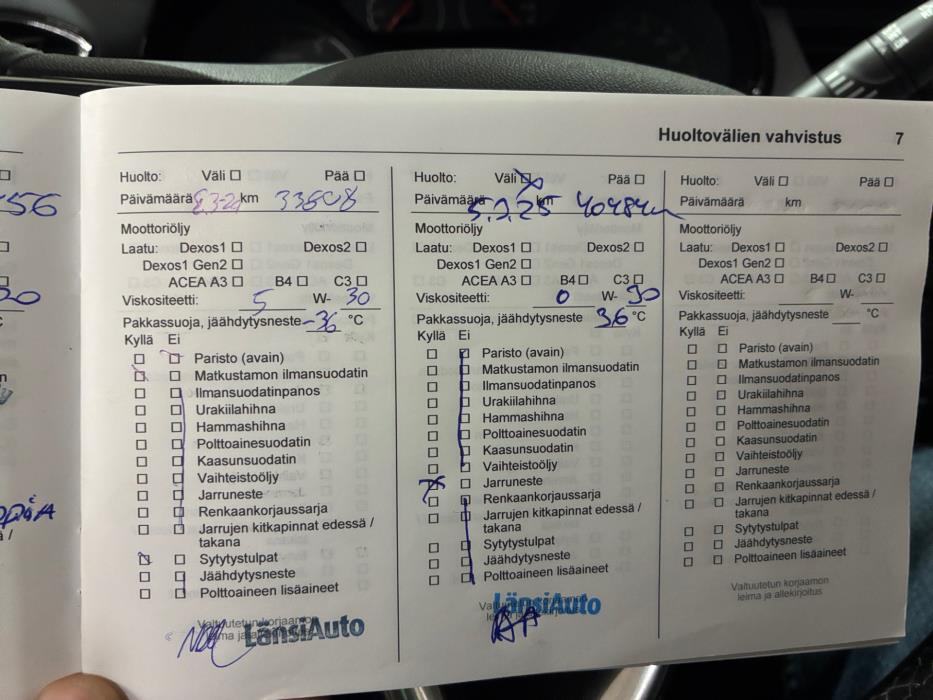 Huoltovälien vahvistus 7
56
20
Huolto: Väli ☐ Pää ☐
Päivämäärä km 33608
Moottoriöljy
Laatu: Dexos1 ☐ Dexos2 ☐
Dexos1 Gen2 ☐
ACEA A3 ☐ B4 ☐ C3 ☐
Viskositeetti: 5 W- 30
Pakkassuoja, jäähdytysneste -36 °C
Kyllä Ei
Paristo (avain)
Matkustamon ilmansuodatin
Ilmansuodatinpanos
Urakiilahihna
Hammashihna
Polttoainesuodatin
Kaasunsuodatin
Vaihteistoöljy
Jarruneste
Renkaankorjaussarja
Jarrujen kitkapinnat edessä /
takana
Sytytystulpat
Jäähdytysneste
Polttoaineen lisäaineet
Valtuutetun korjaamon
leima ja
LänsiAuto
Huolto: Väli ☒ Pää ☐
Päivämäärä km 40484
Moottoriöljy
Laatu: Dexos1 ☐ Dexos2 ☐
Dexos1 Gen2 ☐
ACEA A3 ☐ B4 ☐ C3 ☐
Viskositeetti: 0 W- 30
Pakkassuoja, jäähdytysneste 36 °C
Kyllä Ei
Paristo (avain)
Matkustamon ilmansuodatin
Ilmansuodatinpanos
Urakiilahihna
Hammashihna
Polttoainesuodatin
Kaasunsuodatin
Vaihteistoöljy
Jarruneste
Renkaankorjaussarja
Jarrujen kitkapinnat edessä /
takana
Sytytystulpat
Jäähdytysneste
Polttoaineen lisäaineet
LänsiAuto
Huolto: Väli ☐ Pää ☐
Päivämäärä km
Moottoriöljy
Laatu: Dexos1 ☐ Dexos2 ☐
Dexos1 Gen2 ☐
ACEA A3 ☐ B4 ☐ C3 ☐
Viskositeetti: W-
Pakkassuoja, jäähdytysneste °C
Kyllä Ei
Paristo (avain)
Matkustamon ilmansuodatin
Ilmansuodatinpanos
Urakiilahihna
Hammashihna
Polttoainesuodatin
Kaasunsuodatin
Vaihteistoöljy
Jarruneste
Renkaankorjaussarja
Jarrujen kitkapinnat edessä /
takana
Sytytystulpat
Jäähdytysneste
Polttoaineen lisäaineet
Valtuutetun korjaamon
leima ja allekirjoitus